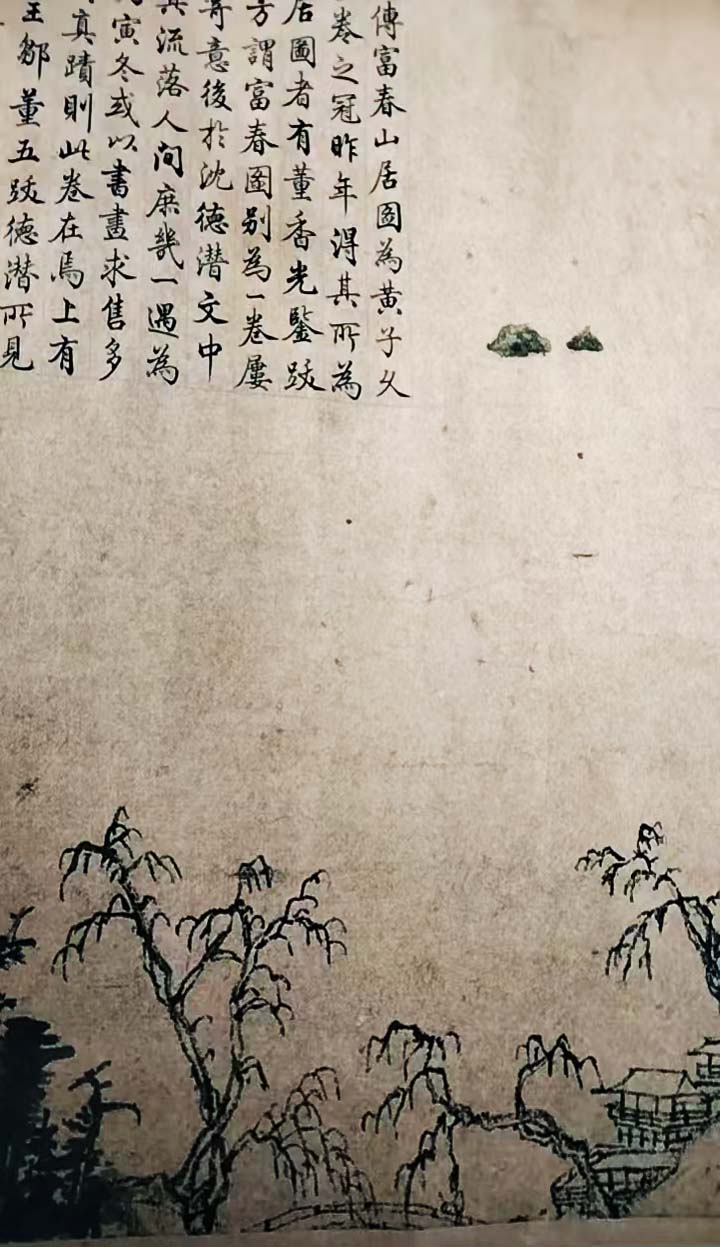 傳富春山居圖為黃子久
卷之冠昨年得其所為
居圖者有董香光鑒跋
方謂富春圖别為一卷屢
寄意後於沈德潛文中
其流落人間庶幾一遇為
寅冬或以書畫求售多
真蹟則此卷在焉上有
王鄒董五跋德潛所見